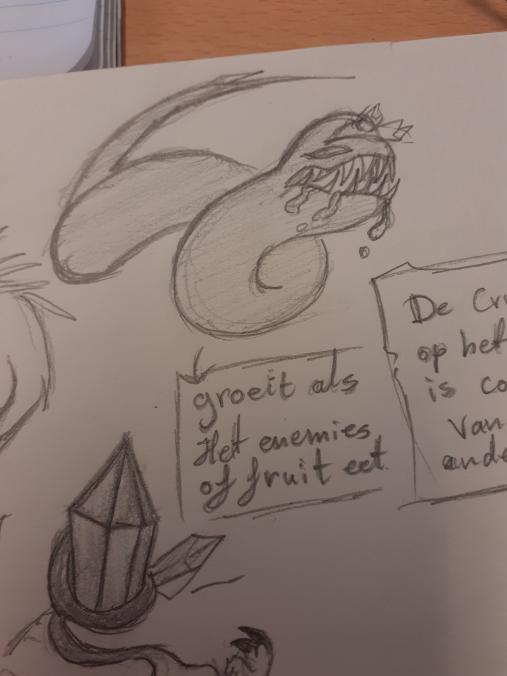 groeit als
Het enemies
of fruit eet
De
op het
is
van